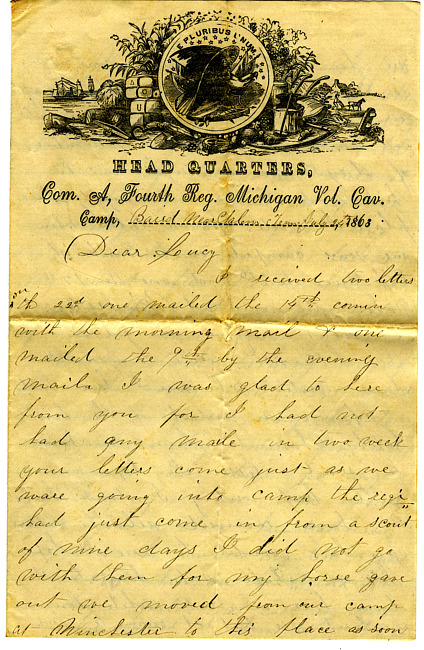 E PLURIBUS UNUM
HEAD QUARTERS,
Com. A, Fourth Reg. Michigan Vol. Cav.
Camp, Near Salem Tenn July 1863
Dear Loucy
I received two letters
th 22d one mailed the 14th comin
with the morning mail & one
mailed the 9th by the evening
maile I was glad to here
from you for I had not
had any maile in two week
your letters come just as we
ware going into camp the regi
had just come in from a scout
of nine days I did not go
with them for my horse gave
out we moved from our camp
at Winchester to this place as soon